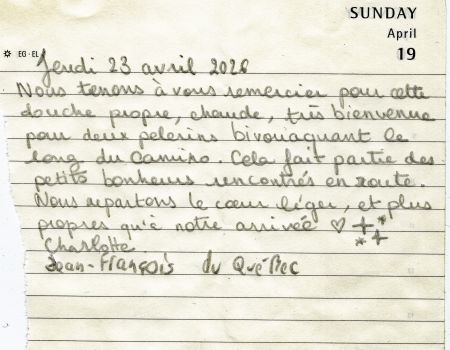 SUNDAY
April
19
EG · EL
Jeudi 23 avril 2026
Nous tenons à vous remercier pour cette
douche propre, chaude, très bienvenue
pour deux pèlerins bivouaquant le
long du Camino. Cela fait partie des
petits bonheurs rencontrés en route.
Nous repartons le cœur léger, et plus
propres qu'à notre arrivée ♡
Charlotte
Jean-François du Québec